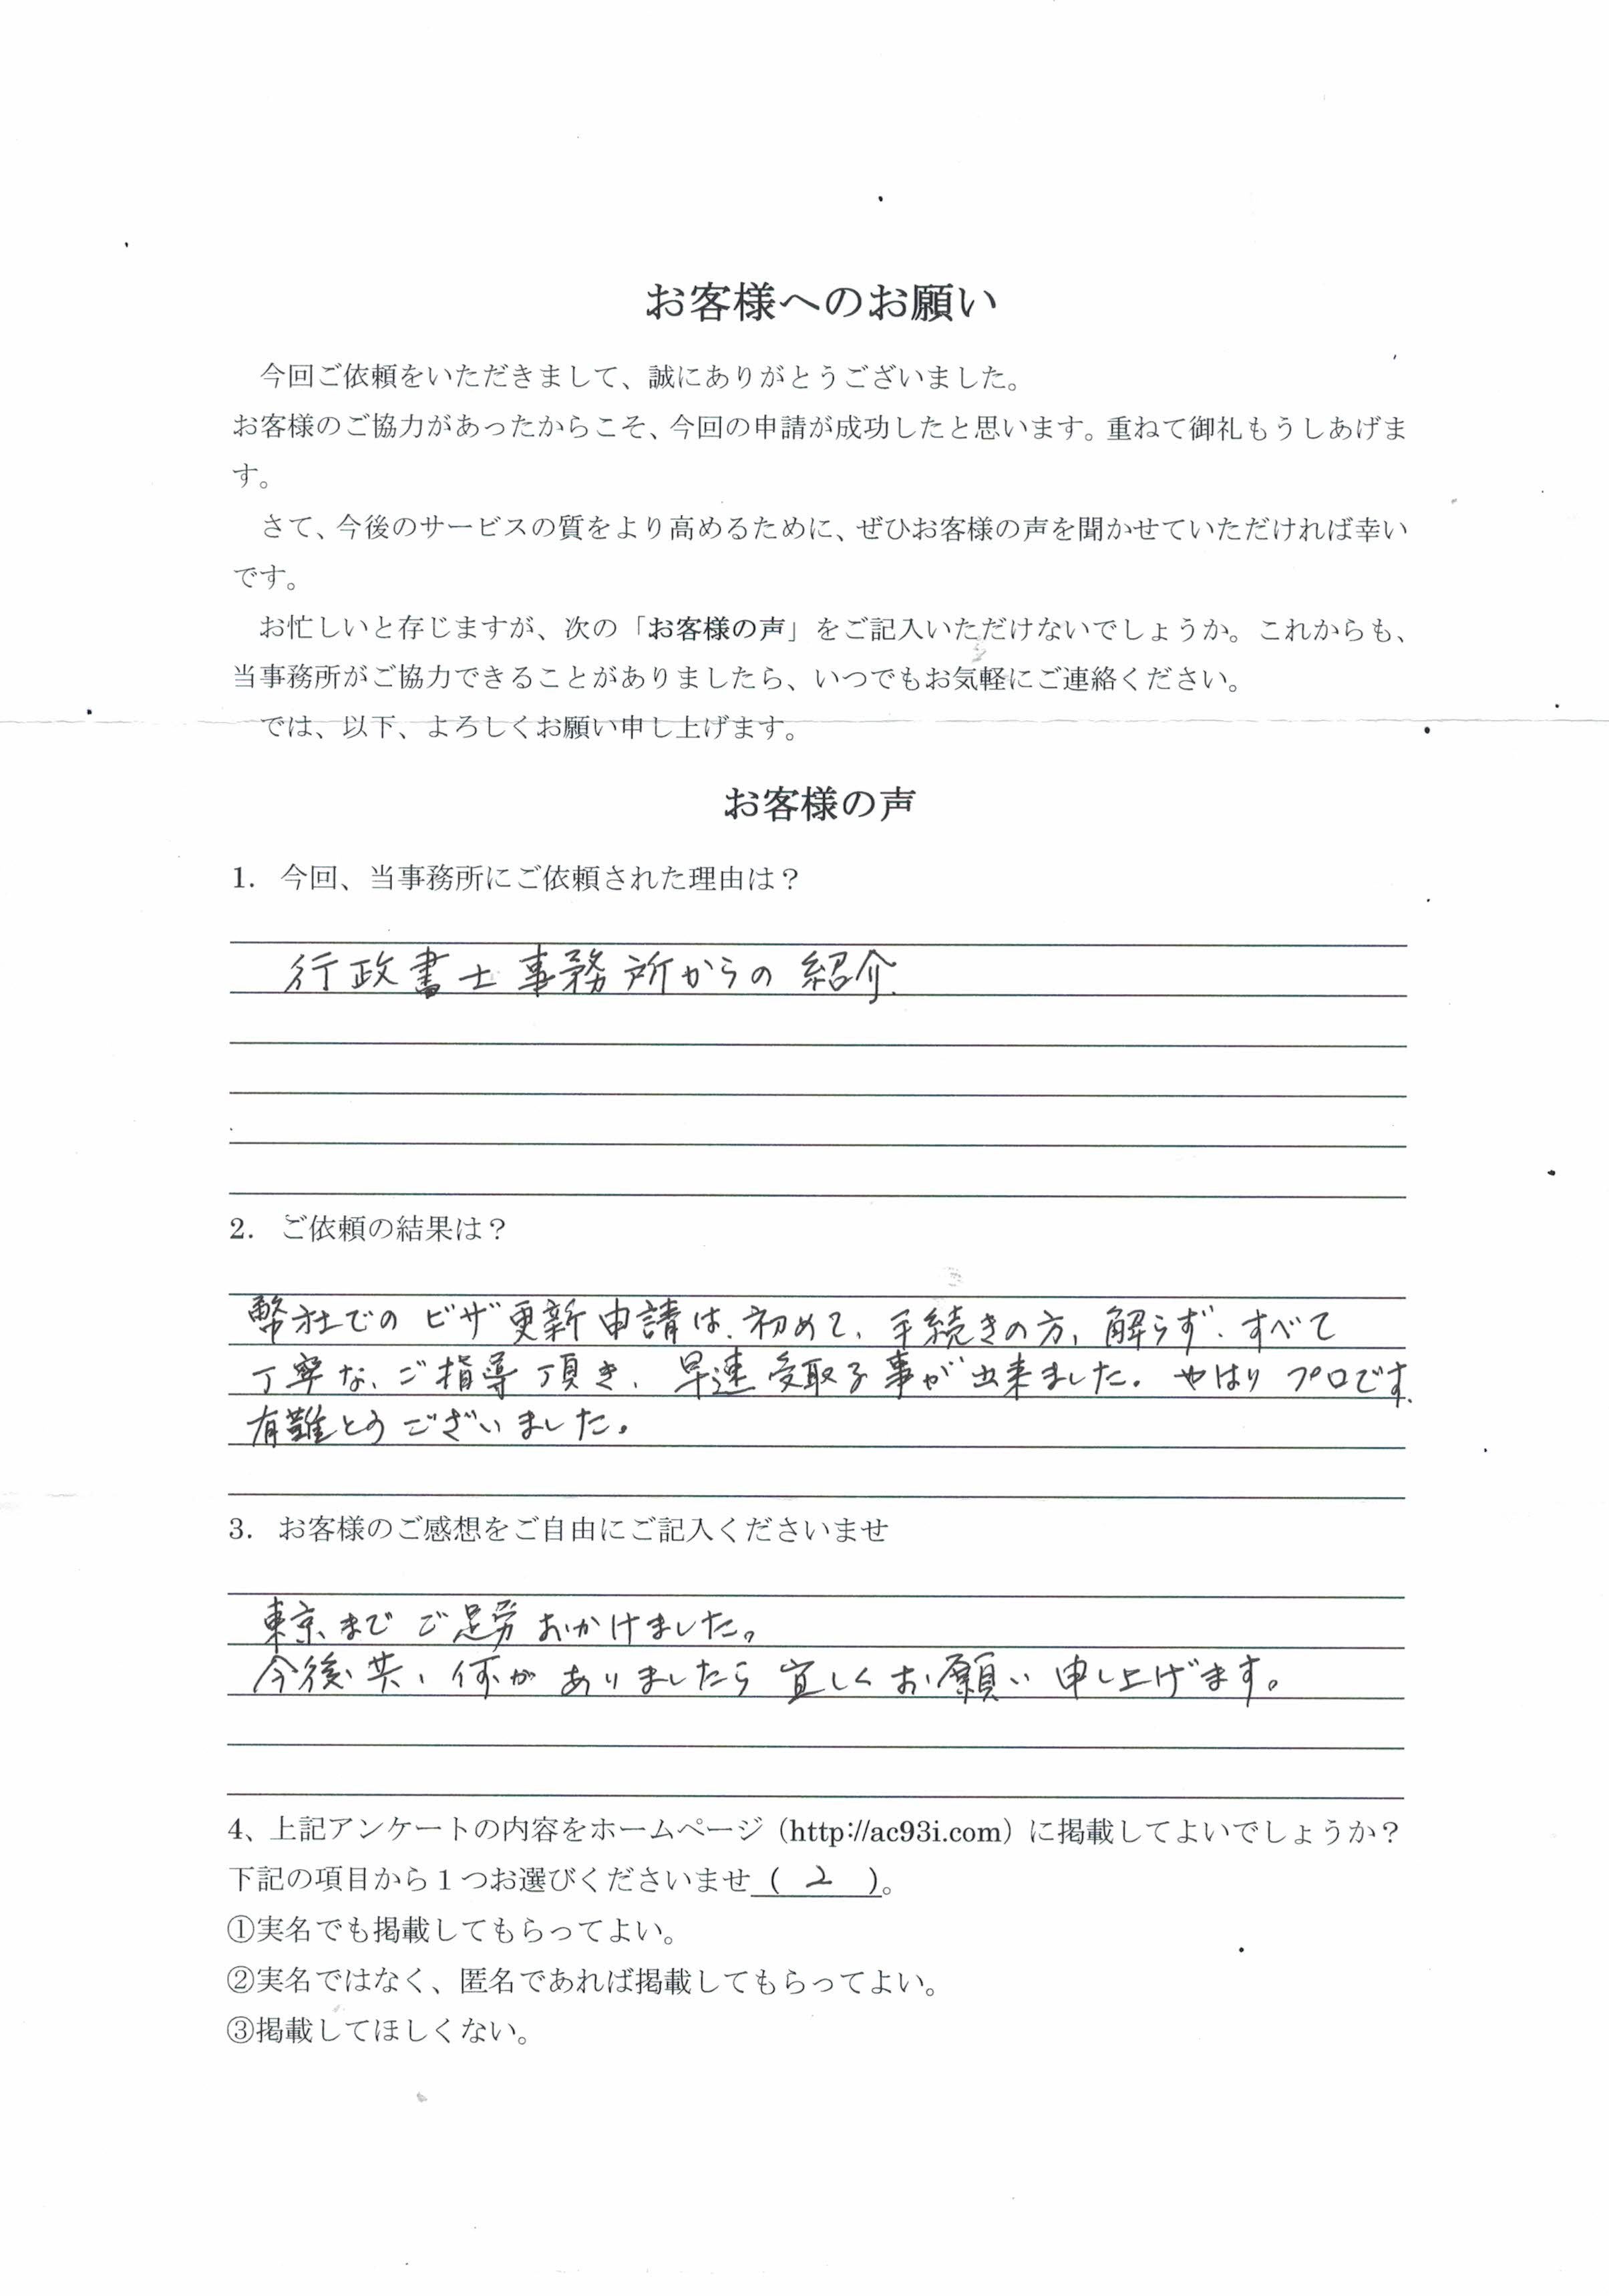 お客様へのお願い
今回ご依頼をいただきまして、誠にありがとうございました。
お客様のご協力があったからこそ、今回の申請が成功したと思います。重ねて御礼もうしあげま
す。
さて、今後のサービスの質をより高めるために、ぜひお客様の声を聞かせていただければ幸い
です。
お忙しいと存じますが、次の「お客様の声」をご記入いただけないでしょうか。これからも、
当事務所がご協力できることがありましたら、いつでもお気軽にご連絡ください。
では、以下、よろしくお願い申し上げます。
お客様の声
1. 今回、当事務所にご依頼された理由は？
行政書士事務所からの紹介.
2. ご依頼の結果は？
弊社でのビザ更新申請は、初めて、手続きの方、解らず、すべて
丁寧な、ご指導頂き、早速受取る事が出来ました。やはりプロです.
有難とうございました。
3. お客様のご感想をご自由にご記入くださいませ
東京までご足労おかけました。
今後共、何がありましたら宜しくお願い申し上げます。
4、上記アンケートの内容をホームページ（http://ac93i.com）に掲載してよいでしょうか？
下記の項目から１つお選びくださいませ（ 2 ）。
①実名でも掲載してもらってよい。
②実名ではなく、匿名であれば掲載してもらってよい。
③掲載してほしくない。